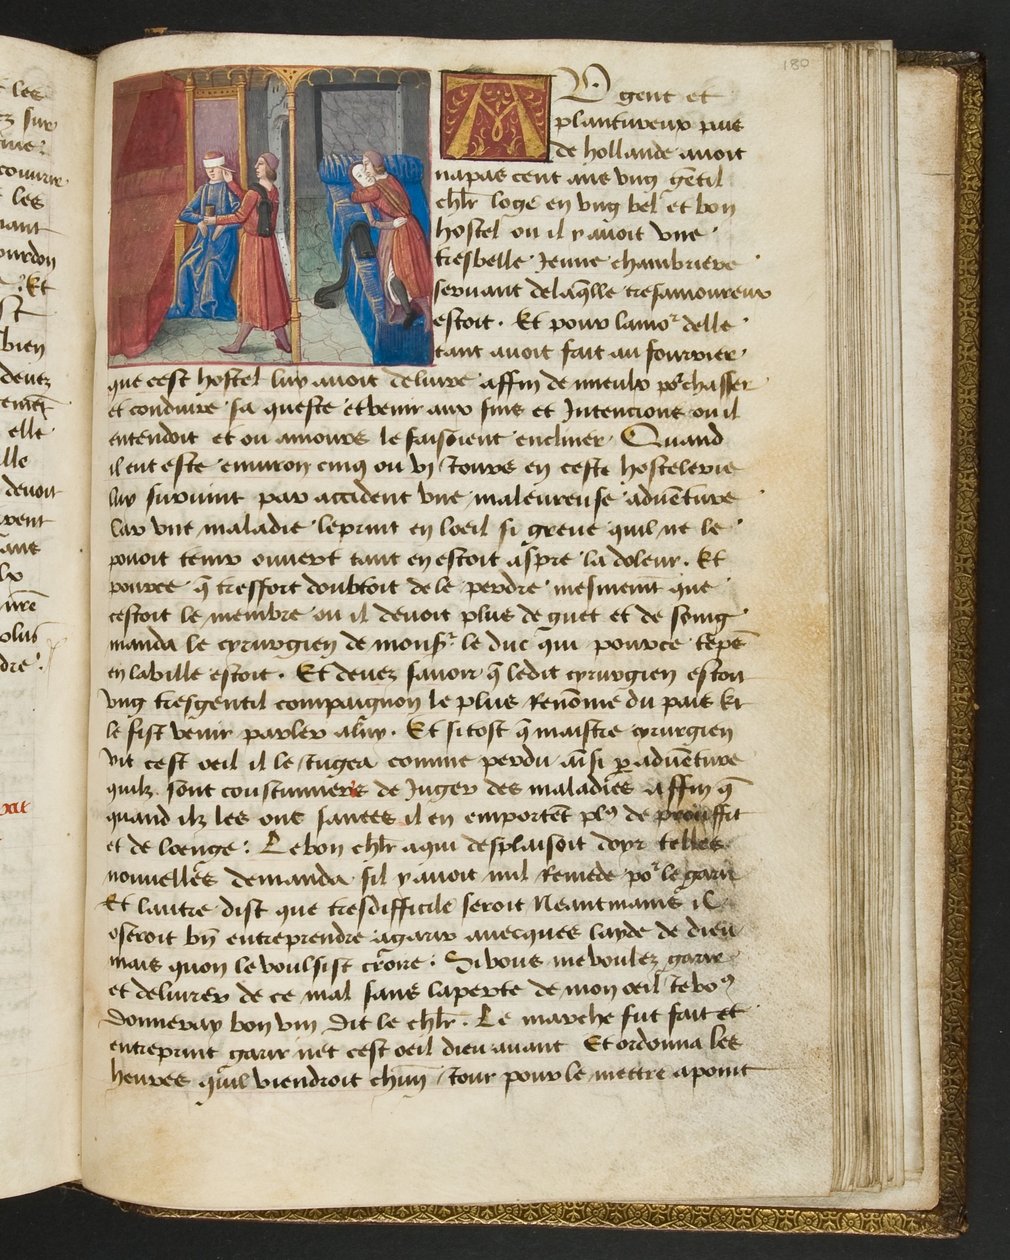 180
Au gent et
plantureux pais
de hollande avoit
napas cent ans ung gētil
chlr̄ loge en ung bel et bon
hostel ou il y avoit une
tresbelle Jeune chambriere
servant de laq̄lle tresamoureux
estoit. Et pour lamoʳ delle
tant avoit fait au fourrier
que cest hostel luy avoit delivre affin de mieulx poʳchasser
et conduire sa queste et venir aux fins et Intencions ou il
entendoit et ou amours le faisoient encliner. Quand
il eut este environ cinq ou vi Jours en ceste hostelerie
luy survint par accident une maleureuse advēture
Car une maladie le print en loeil si greve quil ne le
povoit tenir ouvert tant en estoit aspre la doleur. Et
pource q̄ tresfort doubtoit de le perdre mesmemēt que
cestoit le membre ou il devoit plus de guet et de soing
manda le cyrurgien de monsʳ le duc qui pource tēps
en la ville estoit. Et devez savoir q̄ ledit cyrurgien estoit
ung tresgentil compaignon le plus Renōme du pais Et
le fist venir parler a luy. Et si tost q̄ maistre cyrurgien
vit cest oeil il le Jugea comme perdu ainsi p̱ adventure
quilz sont coustumiers de Juger des maladies affin q̄
quand ilz les ont sanees il en emportēt plꝰ de prouffit
et de loenge: Le bon chlr̄ a qui desplaisoit doyr telles
nouvelles demanda sil y avoit nul Remede poʳ le garir
Et lautre dist que tresdifficile seroit Neantmains il
oseroit bn̄ entreprendre a garir avecques layde de dieu
mais quon le voulsist croire: Si vous me voulez garir
et delivrer de ce mal sans la perte de mon oeil Je voꝰ
donneray bon vin dit le chlr̄. Le marche fut fait et
entreprint garir net cest oeil dieu avant Et ordonna les
heures quil viendroit chūn Jour pour le mettre a point